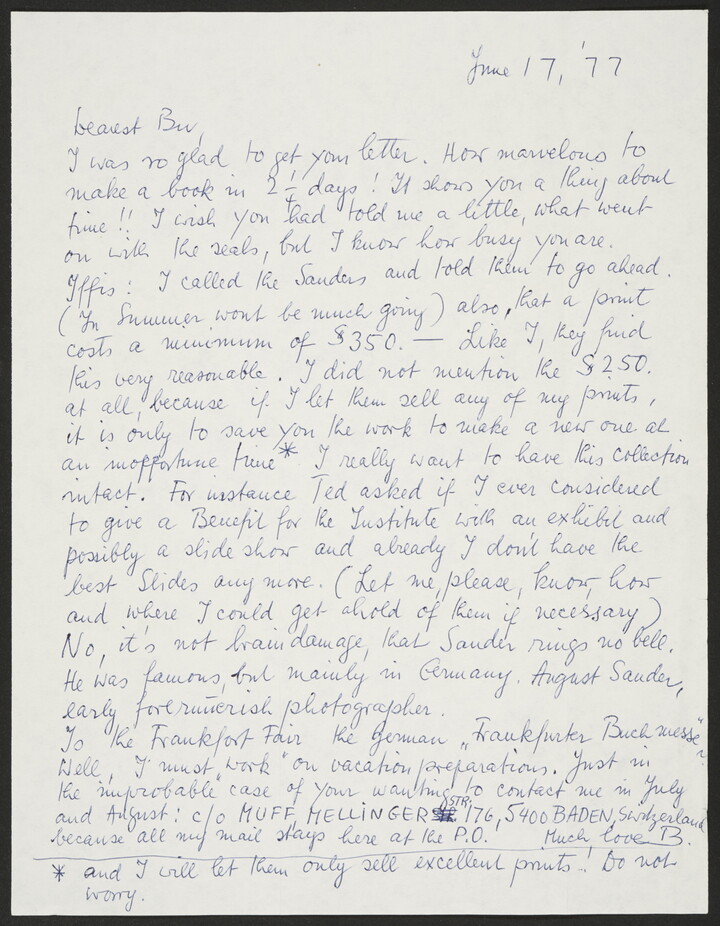 June 17, '77
Dearest Bw,
I was so glad to get your letter. How marvelous to
make a book in 2 1/4 days! It shows you a thing about
time!! I wish you had told me a little, what went
on with the seals, but I know how busy you are.
Iffis: I called the Sanders and told them to go ahead.
(In Summer wont be much going) also, that a print
costs a minimum of $350. — Like I, they find
this very reasonable. I did not mention the $250.
at all, because if I let them sell any of my prints,
it is only to save you the work to make a new one at
an inopportune time* I really want to have this collection
intact. For instance Ted asked if I ever considered
to give a Benefit for the Institute with an exhibit and
possibly a slide show and already I don't have the
best Slides any more. (Let me, please, know, how
and where I could get ahold of them if necessary)
No, it's not braindamage, that Sander rings no bell.
He was famous, but mainly in Germany. August Sander,
early forerunnerish photographer.
Is the Frankfort Fair the german „Frankfurter Buchmesse"?
Well, I must „work" on vacation preparations. Just in
the improbable case of your wanting to contact me in July
and August: c/o MUFF, MELLINGERSTR. 176, 5400 BADEN, Switzerland
because all my mail stays here at the P.O. Much love B.
* and I will let them only sell excellent prints! Do not
worry.